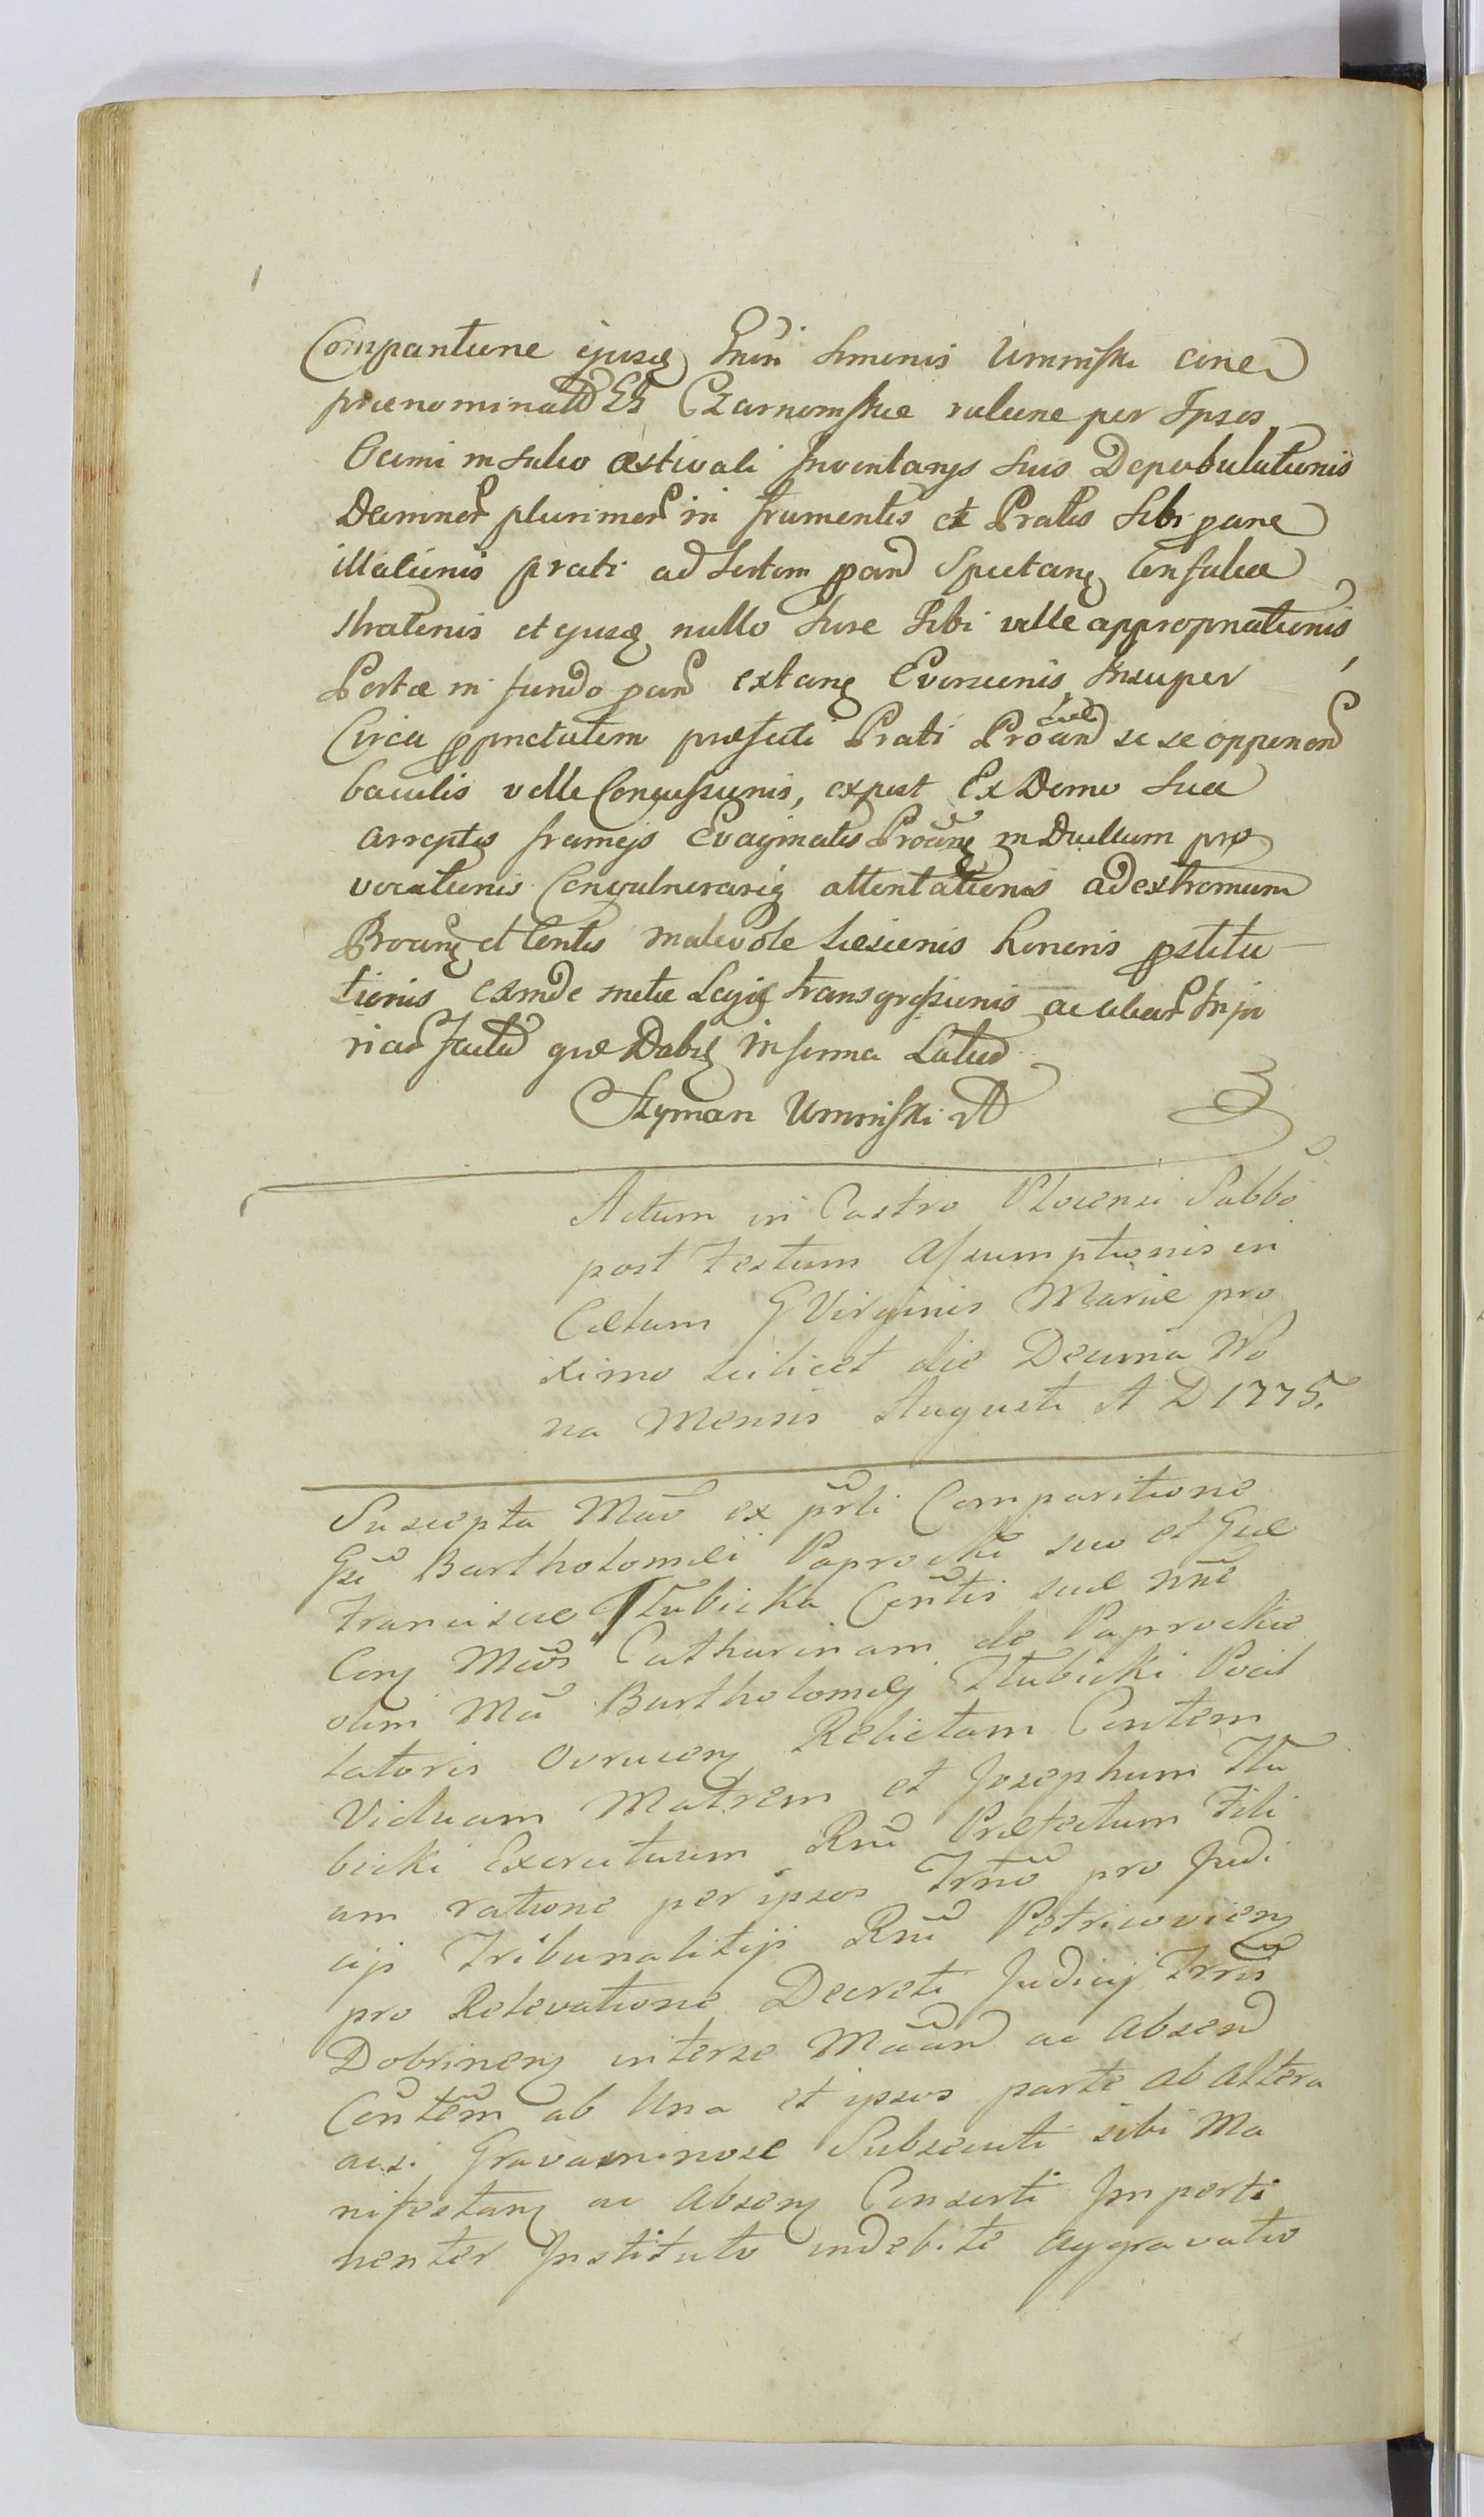 Comparitione ejusdē Gnīri Simonis Umiński cone
prænominatū GG Czarnomskie ratione per Ipsos
Ozimi in Salvo æstivali Inventarys suis Depabulationis
Damnor plurimor in frumentis et Pratis Sibi pane
illationis prati ad Sortem pam Spectanē
et ejusdē nullo Jure Sibi velle appropriationis
Portæ in fundo pam extanē Eversionis Insuper
Circa præfati Prati Proān se se opponen
baculis velle Concussionis, expost Ex Domo Sua
arreptis frameis Evaginatis Proānē in Duellum pro
vocationis Convulnerariē attentationis ad extremum
Proānē et Contis malevole Læsionis honoris pstitu
tionis exinde metæ Legis transgressionis ac aliar Inju
riar Factā que Dabis in forma Latius
Szyman Umiński
Actum in Castro Plocensi Sabbō
post Festum Assumptionis in
Cœlum G Virginis Mariæ pro
ximo scilicet die Decima No
na Mensis Augusti A D 1775.
Suscepta Māo ex prli Comparitione
Gsi Bartholomæi Paprocki suo et Gsæ
Franciscæ Iłubicka Contis suæ nne
Conȝ Mcos Catharinam de Paprockie
olim Mci Bartholomej Iłubicki Pocil
latoris Ovrucenȝ Relictam Contem
Viduam Matrem et Josephum Iłu
bicki Exercituum Rni Præfectum Fili
um ratione per ipsos Trnō pro Judi
cijs Tribunalitijs Rni Petricovienȝ
pro Relevatione Decreti Judicij Trris
Dobrinenȝ inter se Māan ac Absen
Contem ab Una et ipsos parte ab altera
acsi Gravaminose Subsecuti sibi Ma
nifestanȝ ac Absenȝ Consorti Imperti
nenter Instituto indebite aggravatio